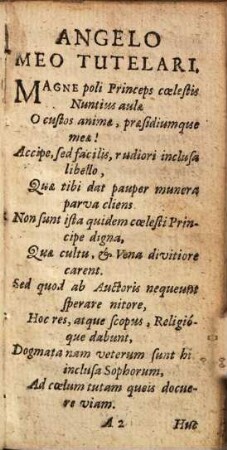 ANGELO
MEO TUTELARI.
MAGNE poli Princeps cœlestis
Nuntius aulæ
O custos animæ, præsidiumque
meæ!
Accipe, sed facilis, rudiori inclusa
libello,
Quæ tibi dat pauper munera
parva cliens.
Non sunt ista quidem cœlesti Prin-
cipe digna,
Quæ cultu, & Vena divitiore
carent.
Sed quod ab Auctoris nequeunt
sperare nitore,
Hoc res, atque scopus, Religió-
que dabunt,
Dogmata nam veterum sunt hìc
inclusa Sophorum,
Ad cœlum tutam queis docue-
re viam.
A 2 Huc